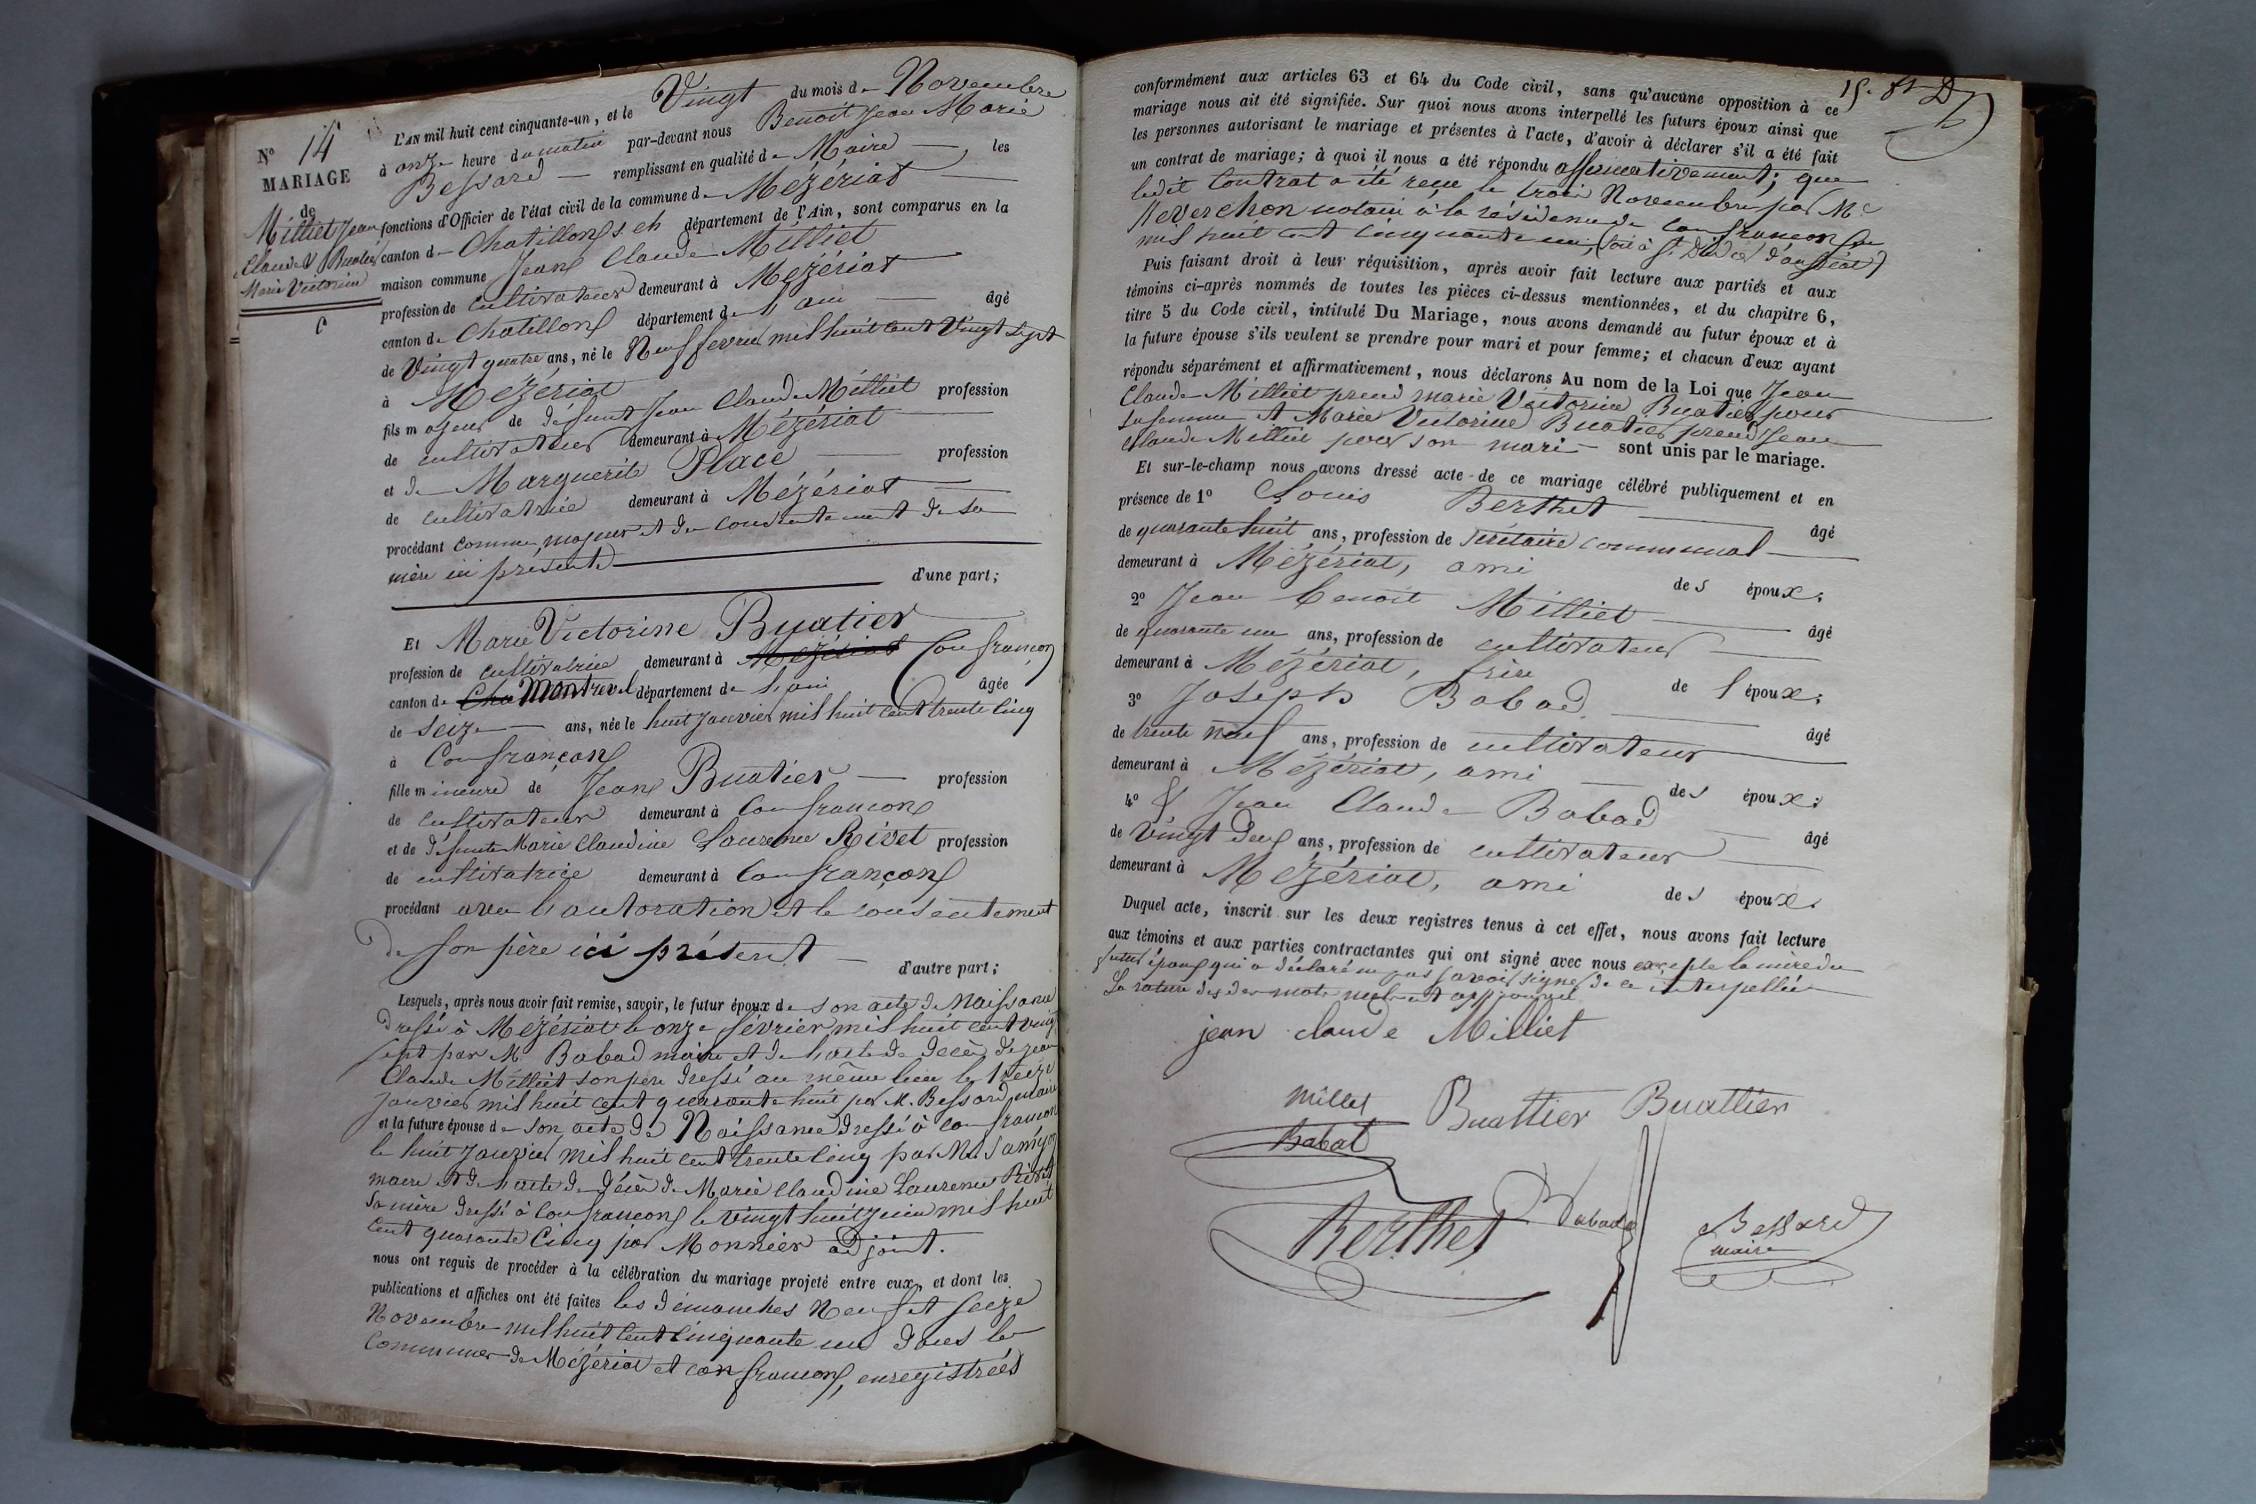 N° 14
MARIAGE
de
Milliet Jean
Claude & Buatier
Marie Victorine
L'AN mil huit cent cinquante-un, et le Vingt du mois de Novembre
à onze heure du matin par-devant nous Benoit Jean Marie
Bessard remplissant en qualité de Maire, les
fonctions d'Officier de l'état civil de la commune de Mézériat
canton de Chatillon s. ch département de l'Ain, sont comparus en la
maison commune Jean Claude Milliet
profession de cultivateur demeurant à Mézériat
canton de Chatillon département de l'ain âgé
de Vingt quatre ans, né le Neuf fevrier mil huit cent Vingt sept
à Mézériat
fils majeur de défunt Jean Claude Milliet profession
de cultivateur demeurant à Mézériat
et de Marguerite Place profession
de cultivatrice demeurant à Mézériat
procédant comme majeur et du consentement de sa
mère ici présente
d'une part;
Et Marie Victorine Buatier
profession de cultivatrice demeurant à Mézériat Confrançon
canton de Cha Montrevel département de l'ain âgée
de seize ans, née le huit janvier mil huit cent trente cinq
à Confrançon
fille mineure de Jean Buatier profession
de cultivateur demeurant à Confrancon
et de défunte Marie Claudine Laurence Rivet profession
de cultivatrice demeurant à Confrançon
procédant avec l'autoration et le consentement
de son père ici présent
d'autre part;
Lesquels, après nous avoir fait remise, savoir, le futur époux de son acte de Naissance
dressé à Mézériat le onze février mil huit cent vingt
sept par M. Babad maire et de l'acte de décès de Jean
Claude Milliet son pere dressé au même lieu le treize
janvier mil huit cent quarante huit par M. Bessard maire
et la future épouse de son acte de Naissance dressé à Confrancon
le huit janvier mil huit cent trente cinq par M.
maire et de l'acte de décès de Marie Claudine Laurence Rivet
sa mère dressé à Confrancon le vingt huit juin mil huit
cent quarante cinq par Monnier adjoint.
nous ont requis de procéder à la célébration du mariage projeté entre eux, et dont les
publications et affiches ont été faites les dimanches Neuf et seize
Novembre mil huit cent cinquante un dans les
communes de Mézériat et confrancon, enregistrées
conformément aux articles 63 et 64 du Code civil, sans qu'aucune opposition à ce
mariage nous ait été signifiée. Sur quoi nous avons interpellé les futurs époux ainsi que
les personnes autorisant le mariage et présentes à l'acte, d'avoir à déclarer s'il a été fait
un contrat de mariage; à quoi il nous a été répondu affirmativement; que
ledit Contrat a été reçu le trois Novembre par Me
notaire à la résidence de Confrancon
mil huit cent cinquante un,
Puis faisant droit à leur réquisition, après avoir fait lecture aux parties et aux
témoins ci-après nommés de toutes les pièces ci-dessus mentionnées, et du chapitre 6,
titre 5 du Code civil, intitulé Du Mariage, nous avons demandé au futur époux et à
la future épouse s'ils veulent se prendre pour mari et pour femme; et chacun d'eux ayant
répondu séparément et affirmativement, nous déclarons Au nom de la Loi que Jean
Claude Milliet prend marie Victorine Buatier pour
sa femme et Marie Victorine Buatier prend Jean
Claude Milliet pour son mari sont unis par le mariage.
Et sur-le-champ nous avons dressé acte de ce mariage célébré publiquement et en
présence de 1° Louis Berthet âgé
de quarante huit ans, profession de sécrétaire communal
demeurant à Mézériat, ami des époux;
2° Jean benoit Milliet âgé
de quarante un ans, profession de cultivateur
demeurant à Mézériat, frère de l'époux;
3° Joseph Babad âgé
de trente neuf ans, profession de cultivateur
demeurant à Mézériat, ami des époux;
4° Jean Claude Babad âgé
de Vingt deux ans, profession de cultivateur
demeurant à Mézériat, ami des époux.
Duquel acte, inscrit sur les deux registres tenus à cet effet, nous avons fait lecture
aux témoins et aux parties contractantes qui ont signé avec nous excepté la mère du
futur époux qui a déclaré ne pas savoir signer de ce interpellée
La rature des deux mots nuls est approuvée
jean claude Milliet
Millet Buattier Buattier
Babat
Berthet Babad Bessard
maire